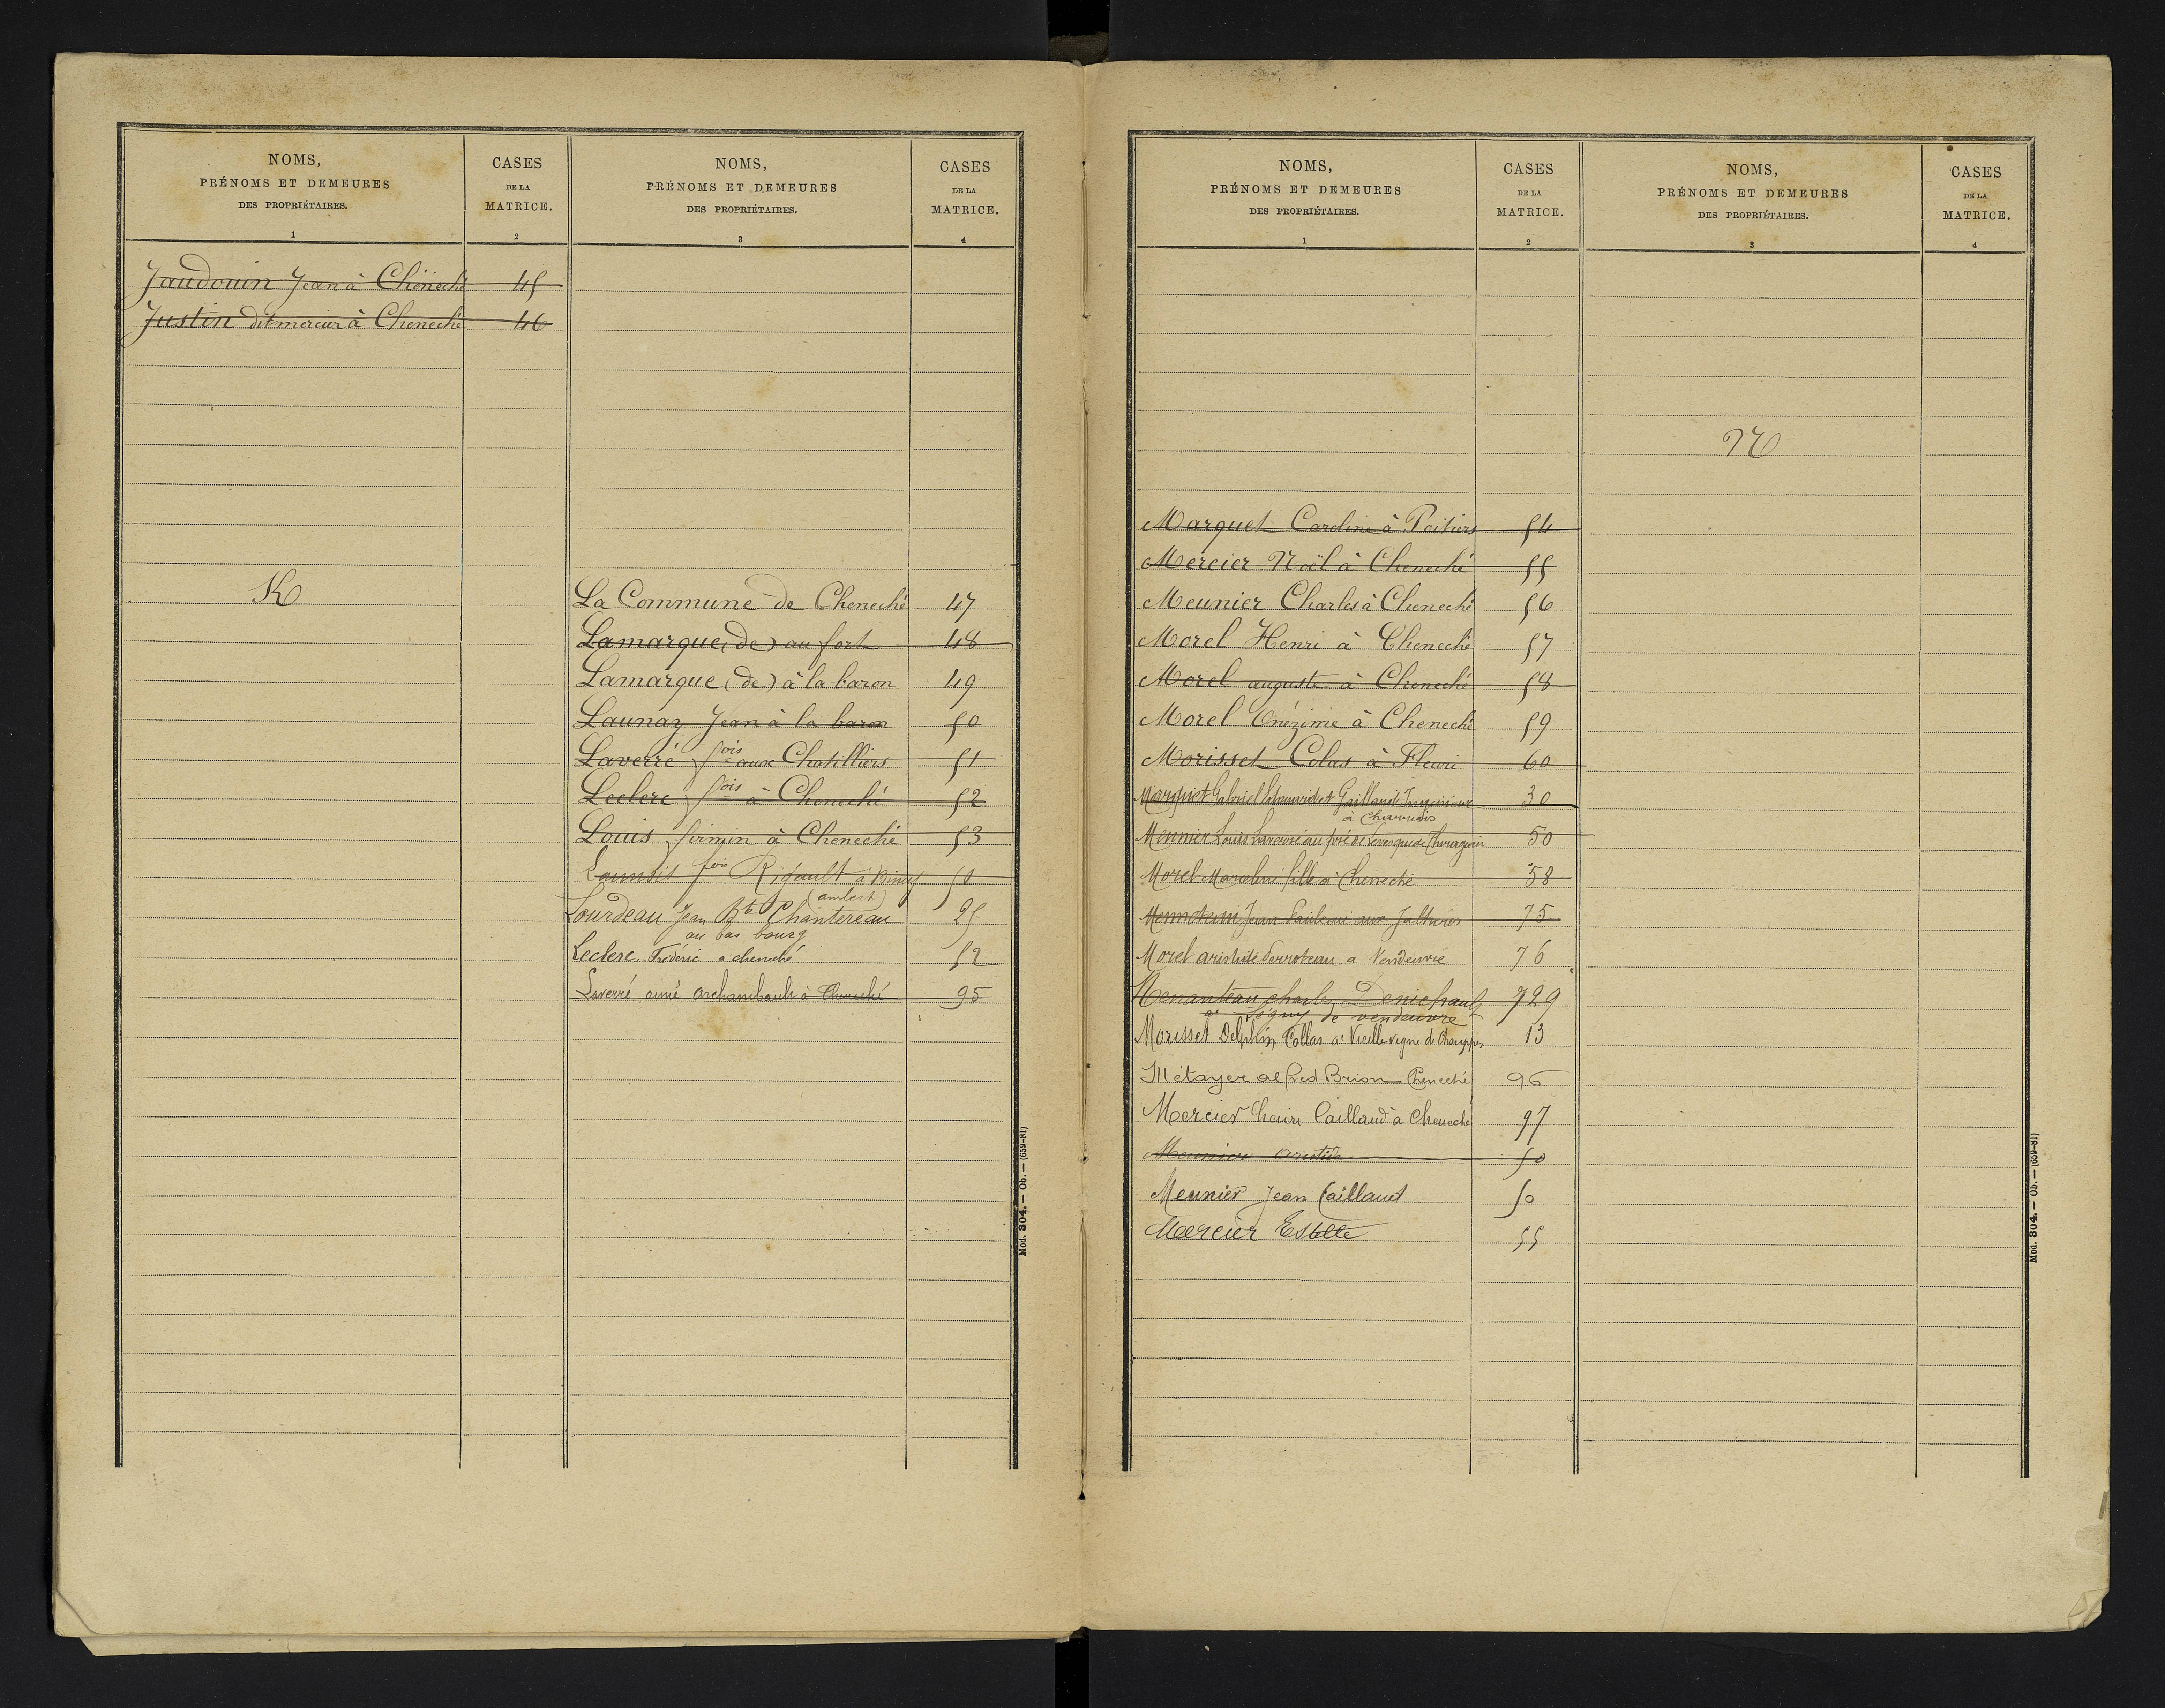 NOMS,
PRÉNOMS ET DEMEURES
DES PROPRIÉTAIRES.
1
CASES
DE LA
MATRICE.
2
Jaudouin Jean à Cheneché 45
Justin dit mercier à Cheneché 46
K
NOMS,
PRÉNOMS ET DEMEURES
DES PROPRIÉTAIRES.
3
CASES
DE LA
MATRICE.
4
La Commune de Cheneché 47
Lamarque (de) au fort 48
Lamarque (de) à la baron 49
Launay Jean à la baron 50
Laverré fois aux Chatilliers 51
Leclerc fois à Cheneché 52
Louis firmin à Cheneché 53
fois Rigault à 50
(ambert)
Lourdeau Jean Bte Chantereau 25
au bas bourg
Leclerc Frédéric à cheneché 52
Laverré aimé archambault à Cheneché 95
Mod. 304. — Ob. — (659-81)
NOMS,
PRÉNOMS ET DEMEURES
DES PROPRIÉTAIRES.
1
CASES
DE LA
MATRICE.
2
Marquet Caroline à Poitiers 54
Mercier Noël à Cheneché 55
Meunier Charles à Cheneché 56
Morel Henri à Cheneché 57
Morel auguste à Cheneché 58
Morel Onézime à Cheneché 59
Morisset Colas à Fleuri 60
Marquet Gabriel Gaillard 30
à Charrais
Meunier Louis Laverré au pré de Levesque de 50
Morel Marceline fille à Cheneché 58
Jean aux 75
Morel aristide Perroteau a Vendeuvre 76
Menanteau charles 729
a Signy de vendeuvre
Morisset Delphin Collas a Vieille vigne de 13
Métayer alfred Brion Cheneché 96
Mercier henri Caillaud a Cheneché 97
Meunier aristide 50
Meunier Jean Caillaud 50
Mercier Estelle 55
NOMS,
PRÉNOMS ET DEMEURES
DES PROPRIÉTAIRES.
3
CASES
DE LA
MATRICE.
4
N
Mod. 304. — Ob. — (659-81)